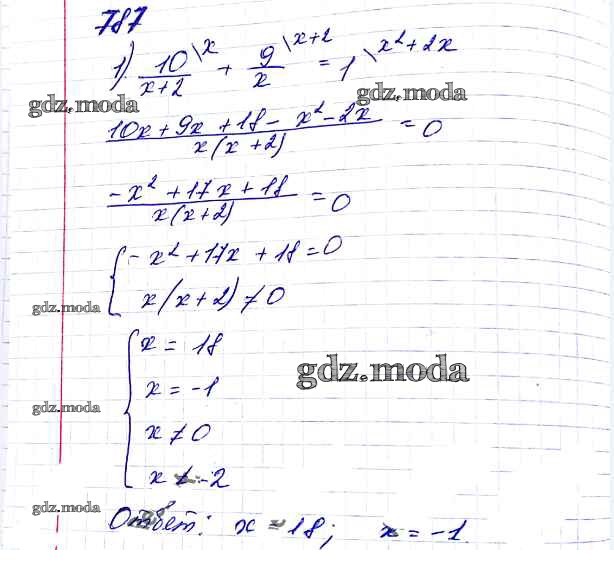 787
1) 10/(x+2) \x + 9/x \x+2 = 1 \x²+2x
gdz.moda gdz.moda
(10x + 9x + 18 - x² - 2x)/(x(x+2)) = 0
(-x² + 17x + 18)/(x(x+2)) = 0
{ -x² + 17x + 18 = 0
x(x+2) ≠ 0
gdz.moda
{ x = 18
gdz.moda
x = -1
gdz.moda
x ≠ 0
x ≠ -2
gdz.moda
Ответ: x = 18; x = -1